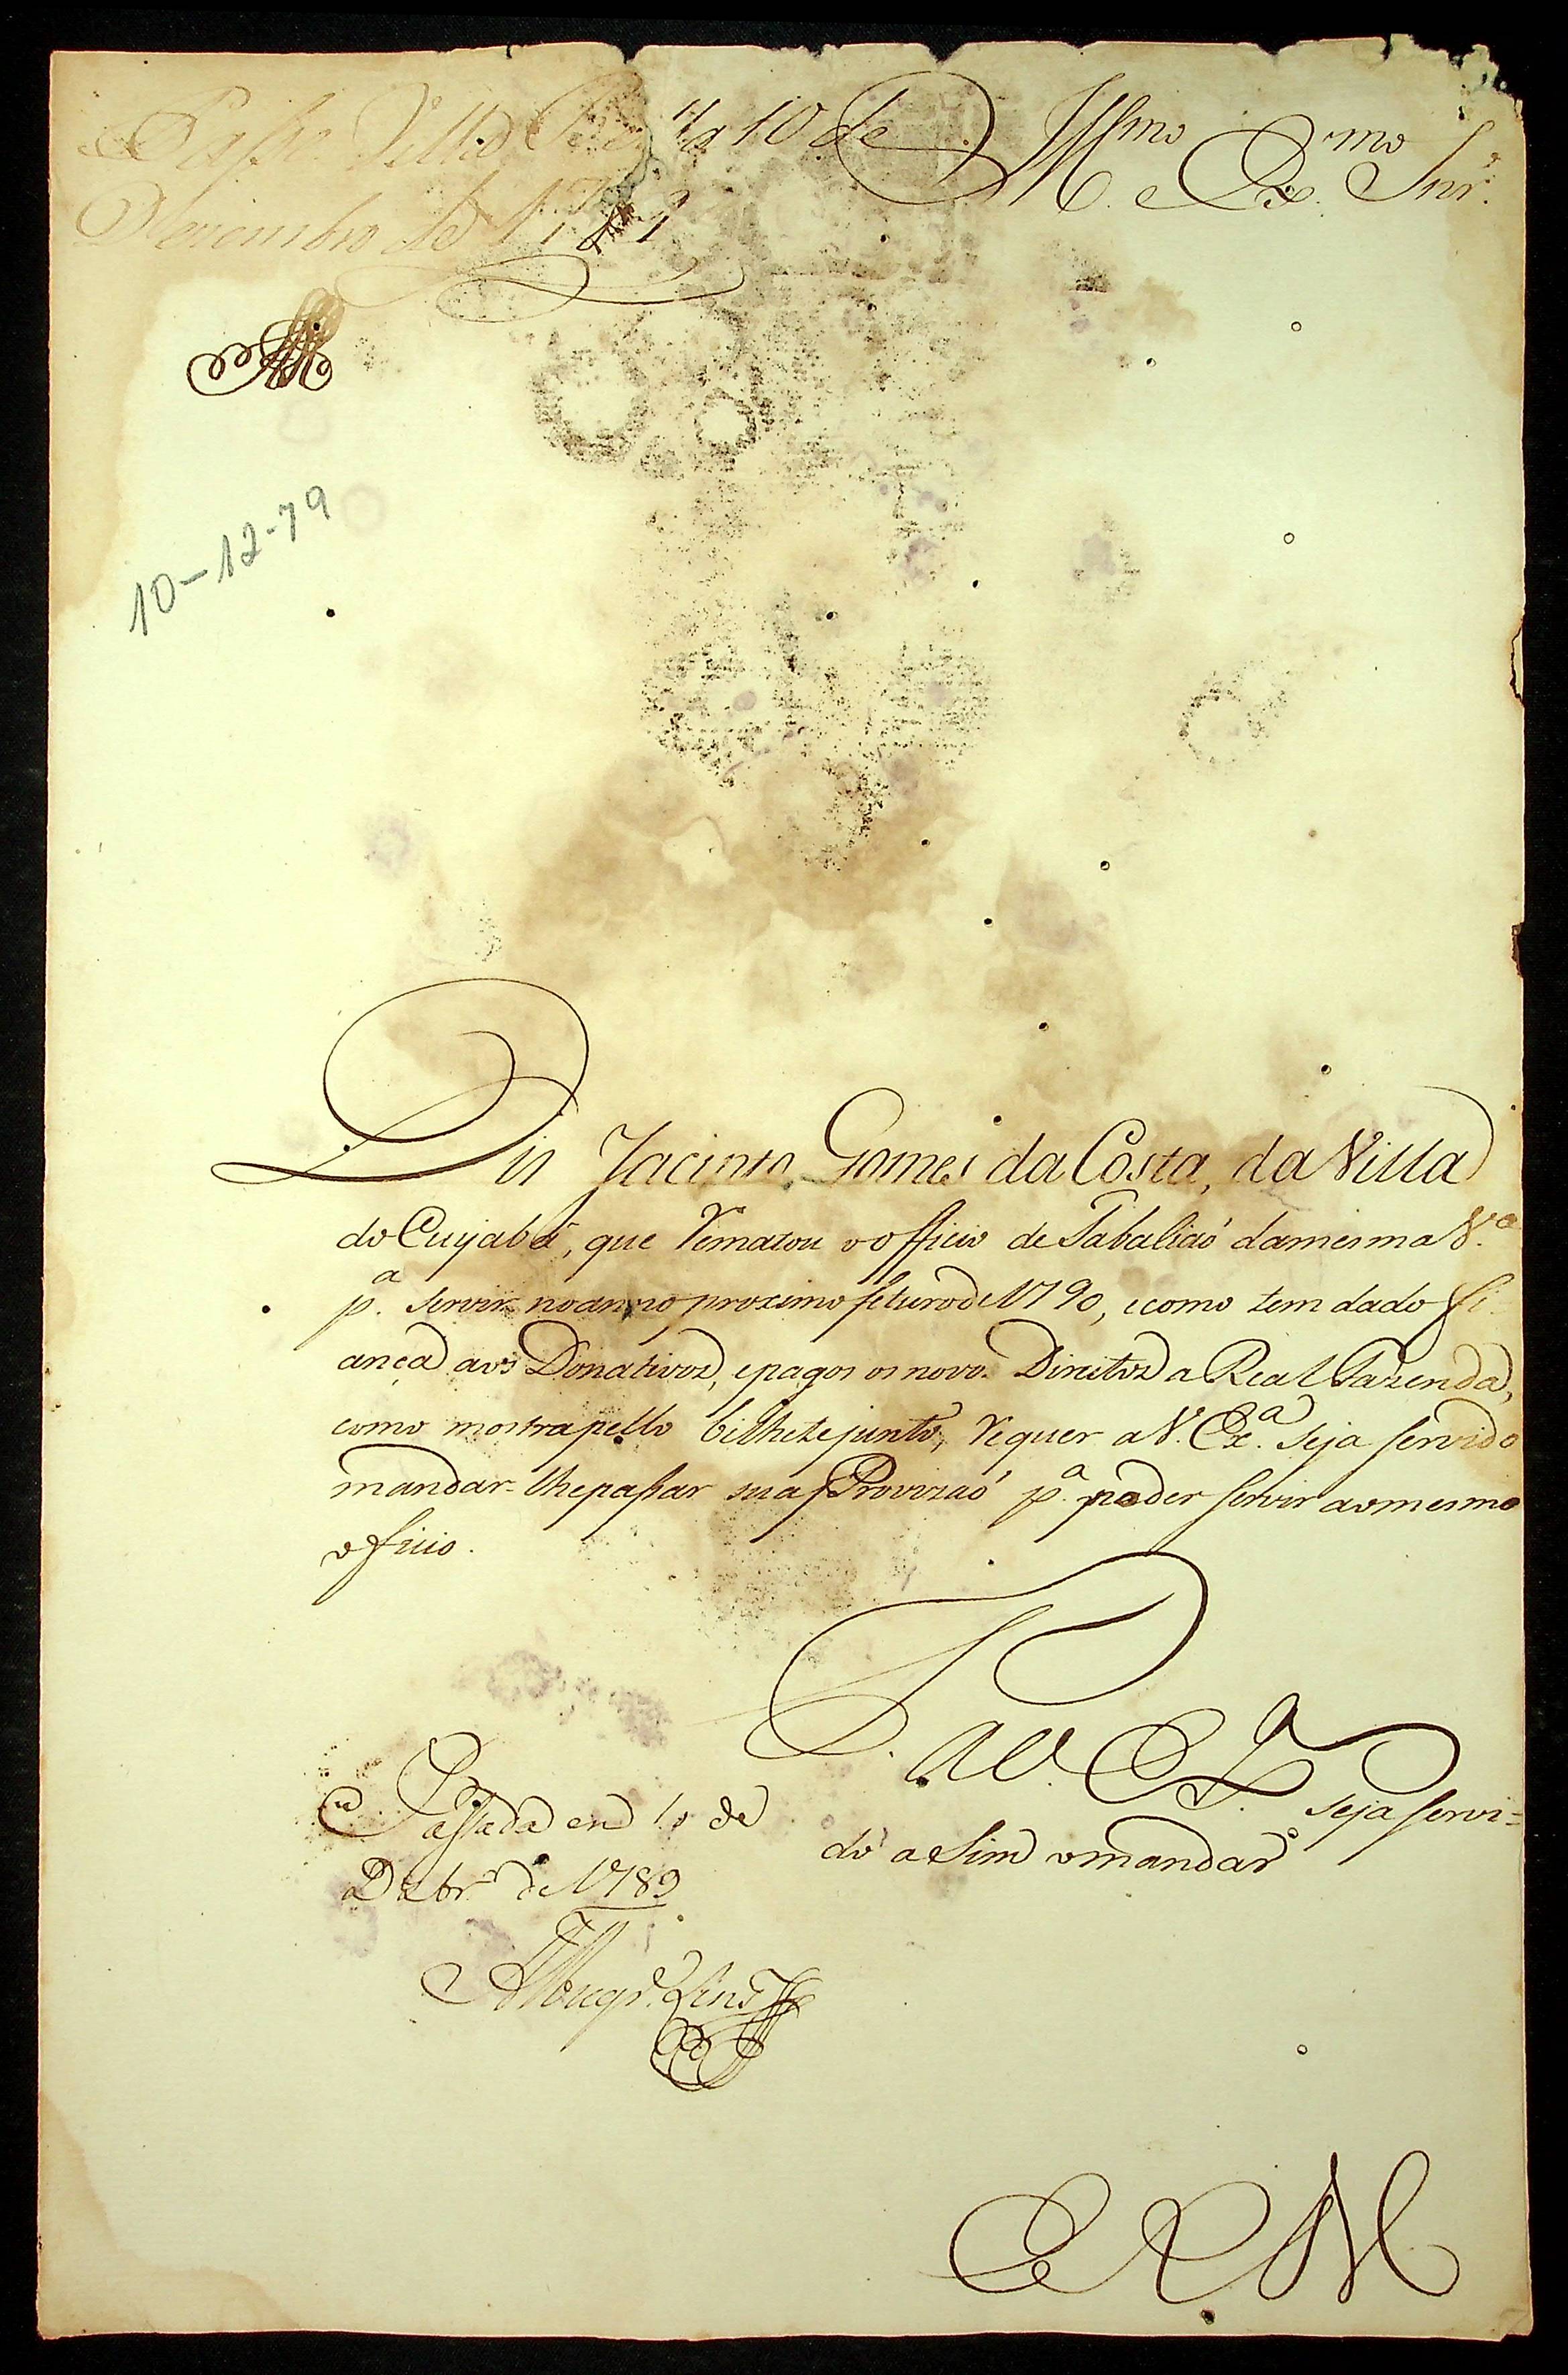 Passe. Villa Bella 10 de
Dezembro de 1789
Illmo. e Ex.mo Snr.
10-12-79
Diz Jacinto Gomes da Costa, da Villa
do Cuyabá, que Rematou o officio de Tabaliaõ da mesma V.ª
p.ª servir no anno proximo futuro de 1790, e como tem dado fi-
ança aos Donativos, e pagos os novos Direitos a Real Fazenda,
como mostra pello bilhete junto, Requer a V. Ex.ª seja servido
mandar-lhe passar sua Provizaõ p.ª poder servir ao mesmo
oficio.
P. a V. Ex.ª seja servi=
do asim o mandar
Passada em 10 de
Dezbrº de 1789
E R M